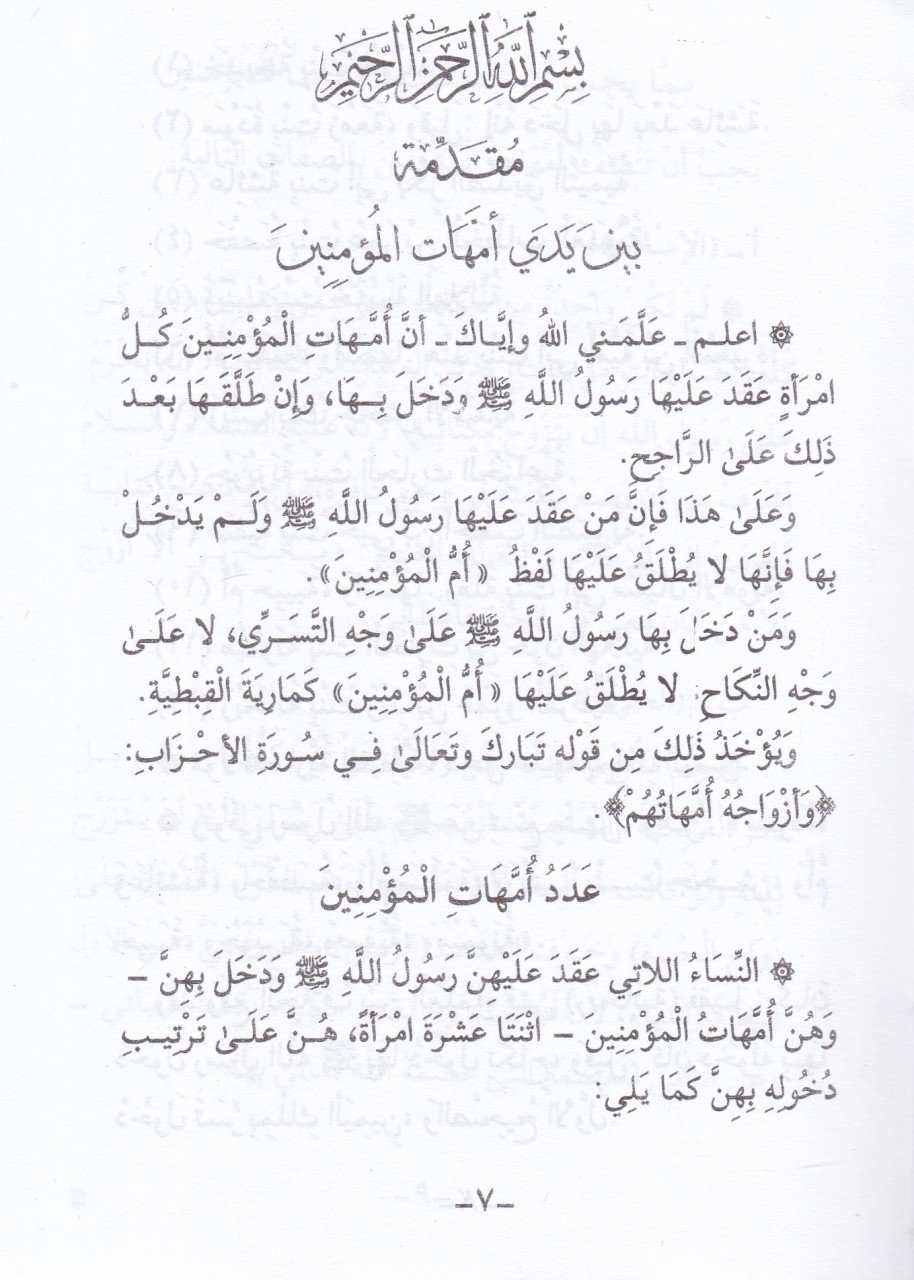 بِسْمِ اللَّهِ الرَّحْمَٰنِ الرَّحِيمِ
مُقَدِّمة
بين يَدَي أمَّهَات المُؤمِنِينَ
۞ اعلـم ـ عَلَّمَني اللهُ وإيَّـاكَ ـ أنَّ أُمَّهَاتِ الْمُؤْمِنِـينَ كُـلُّ
امْرَأةٍ عَقَدَ عَلَيْهَا رَسُولُ اللَّهِ ﷺ وَدَخَلَ بِـهَا، وَإنْ طَلَّقَـهَا بَعْـدَ
ذَلِكَ عَلَىٰ الرَّاجحِ.
وَعَلَىٰ هَذَا فَإِنَّ مَنْ عَقَدَ عَلَيْهَا رَسُولُ اللَّهِ ﷺ وَلَـمْ يَدْخُـلْ
بِهَا فَإِنَّهَا لا يُطْلَقُ عَلَيْهَا لَفْظُ «أُمُّ الْمُؤْمِنِينَ».
وَمَنْ دَخَلَ بِهَا رَسُولُ اللَّه ﷺ عَلَىٰ وَجْهِ التَّسَرِّي، لا عَلَـىٰ
وَجْهِ النِّكَاحِ لا يُطْلَقُ عَلَيْهَا «أُمُّ الْمُؤْمِنِينَ» كَمَارِيَةَ الْقِبْطِيَّةِ.
وَيُؤْخَذُ ذَلِكَ مِن قَوْلِه تَبَاركَ وتَعَالَىٰ فِـي سُـورَةِ الأحْـزَابِ:
﴿وَأزْوَاجُهُ أُمَّهَاتُهُمْ﴾.
عَدَدُ أُمَّهَاتِ الْمُؤْمِنِينَ
۞ النِّسَاءُ اللاتي عَقَدَ عَلَيْهِنَّ رَسُولُ اللَّهِ ﷺ وَدَخَلَ بِهِنَّ –
وَهُنَّ أُمَّهَاتُ الْمُؤْمِنِينَ – اثْنَتَا عَشْرَةَ امْرَأةً، هُـنَّ عَلَـىٰ تَرْتِيـبِ
دُخُولِهِ بِهِنَّ كَمَا يَلِي:
ـ٧ـ